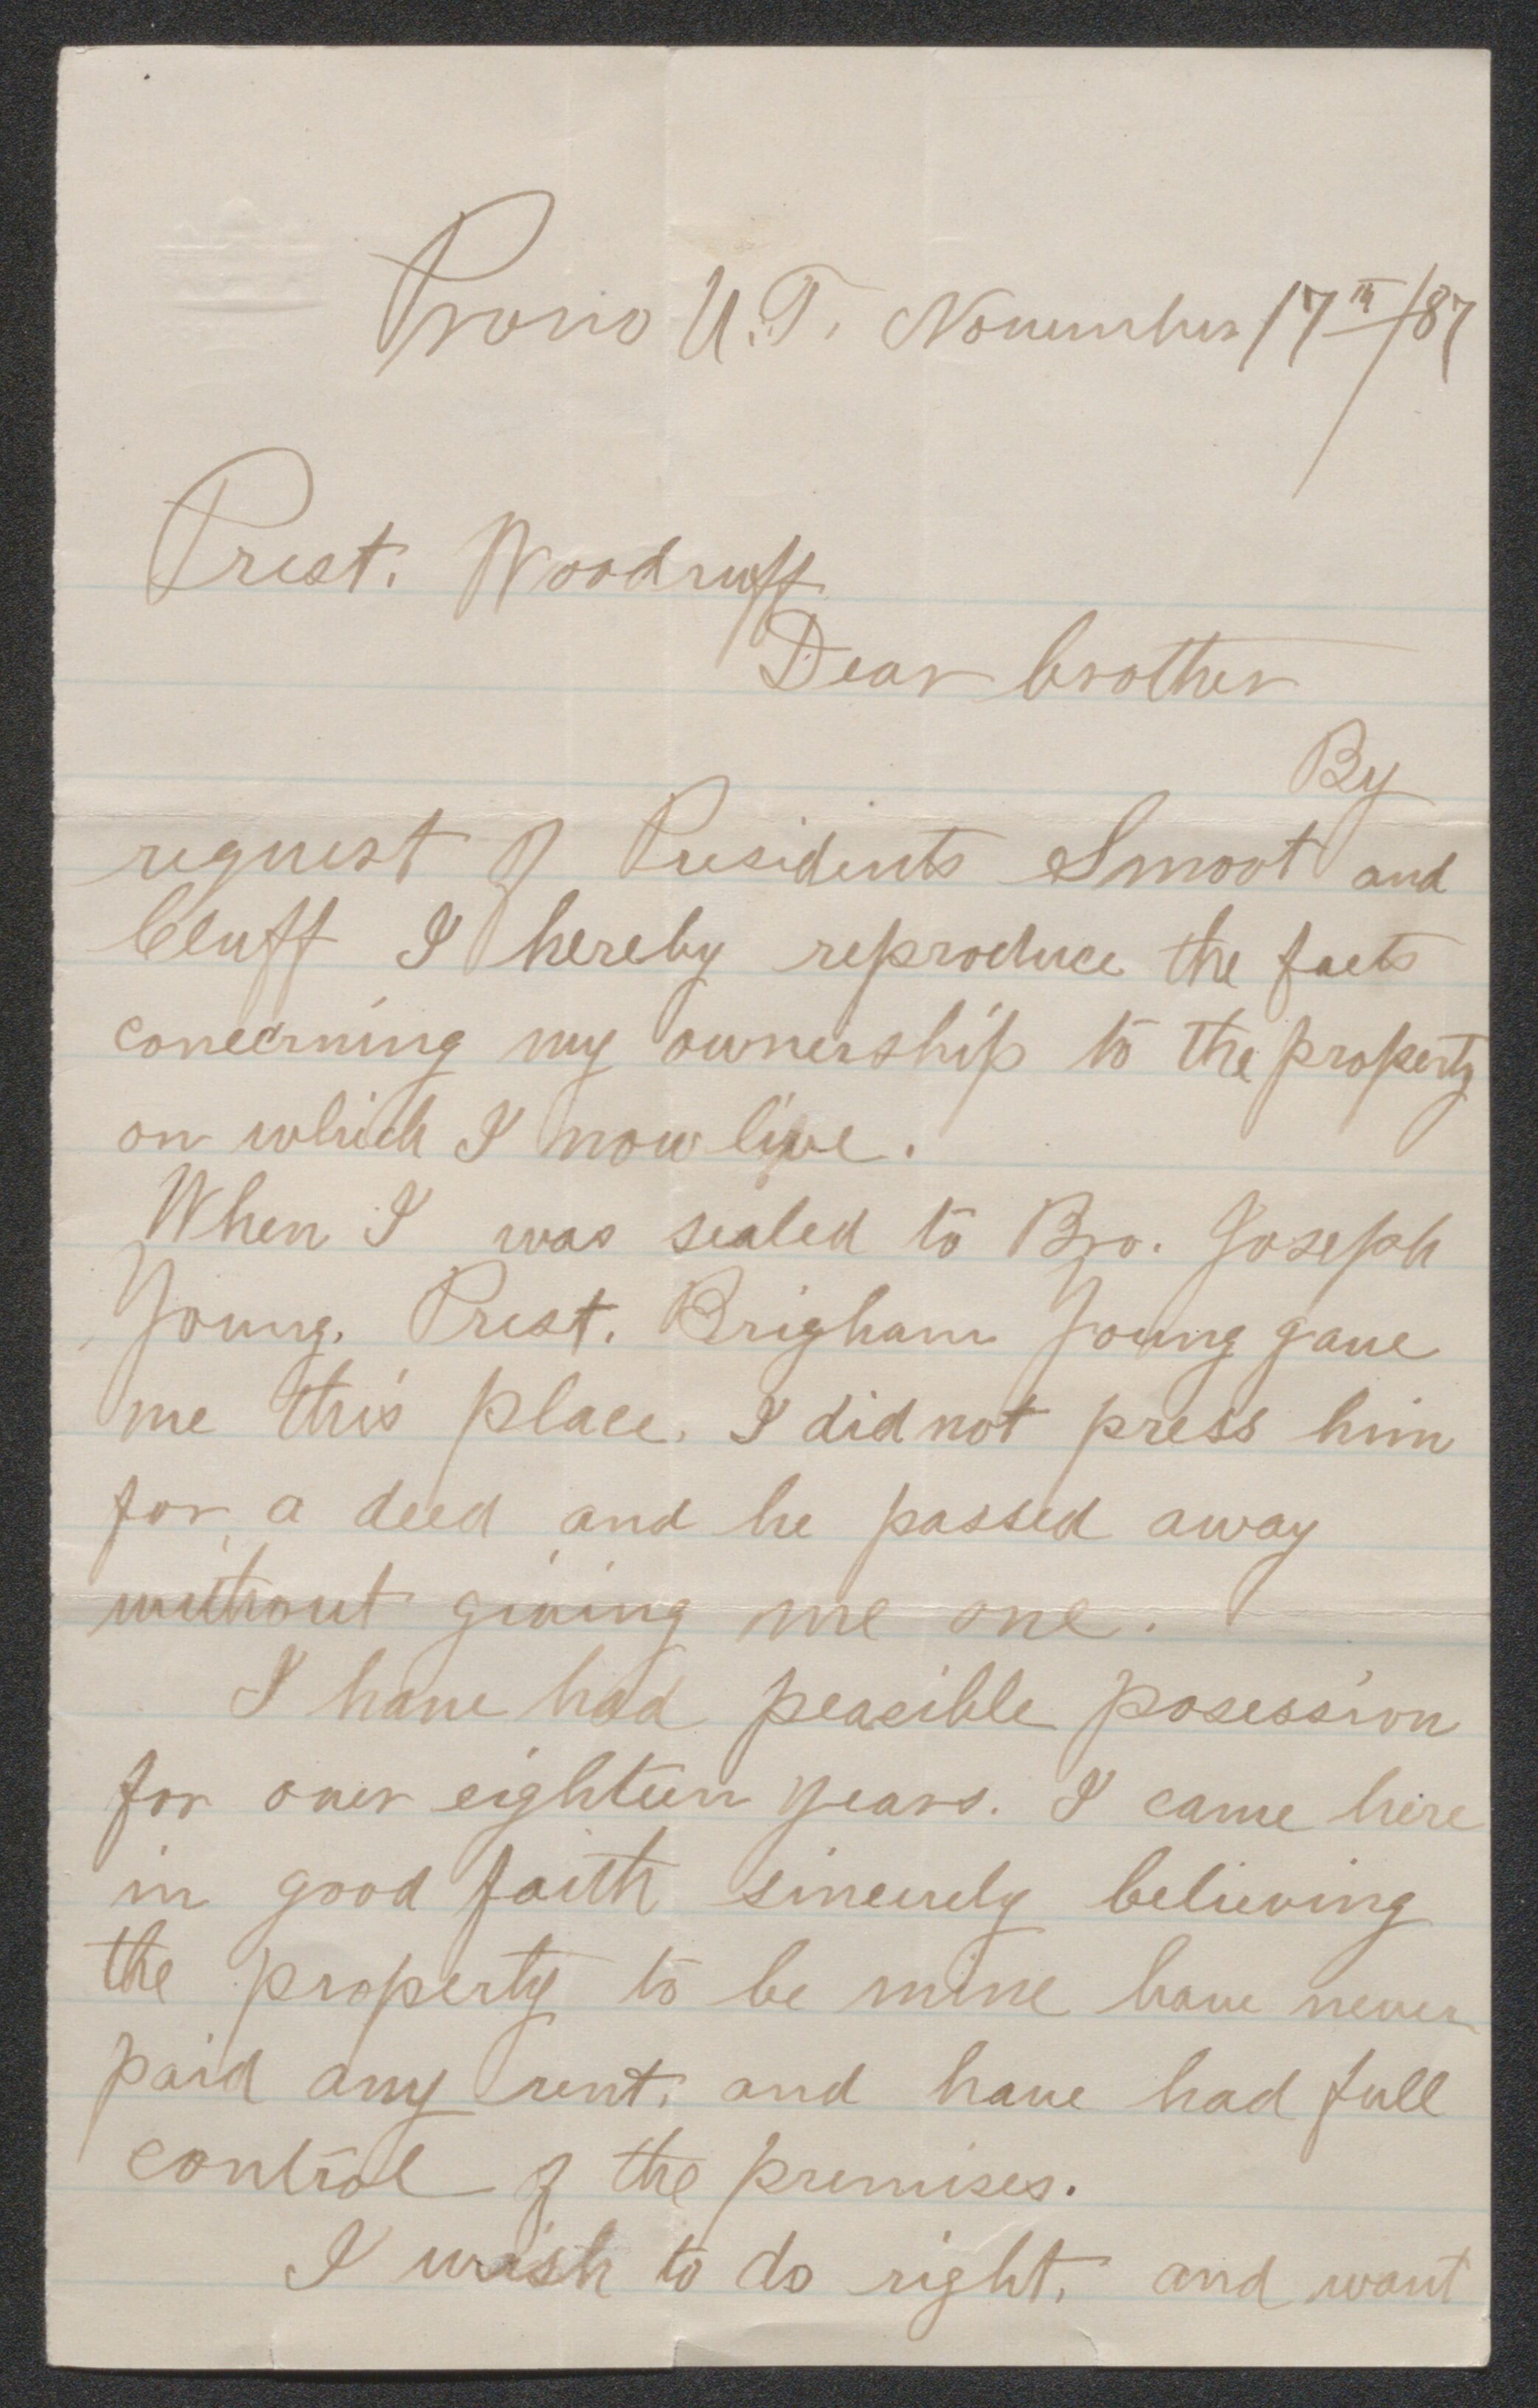 Provo U.T. November 17th/87
Prest. Woodruff
Dear brother
By
request of Presidents Smoot and
Cluff I hereby reproduce the facts
concerning my ownership to the property
on which I now live.
When I was sealed to Bro. Joseph
Young, Prest. Brigham Young gave
me this place. I did not press him
for a deed and he passed away
without giving me one.
I have had peacible posession
for over eighteen years. I came here
in good faith sincerely believing
the property to be mine have never
paid any rent, and have had full
control of the premises.
I wish to do right, and want